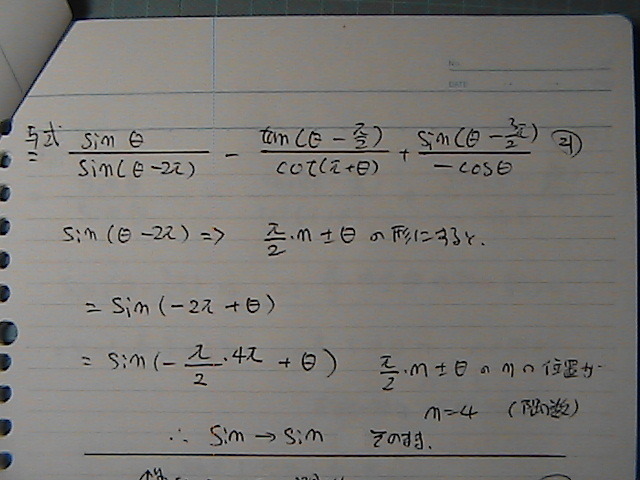 No.
DATE
与式 = sin θ / sin(θ-2π) - tan(θ-π/2) / cot(π+θ) + sin(θ-3π/2) / -cosθ
sin(θ-2π) => π/2・n±θ の形にすると.
= sin(-2π+θ)
= sin(-π/2・4π+θ) π/2・n±θ の nの位置が
n=4 (偶数)
∴ sin→sin そのまま.